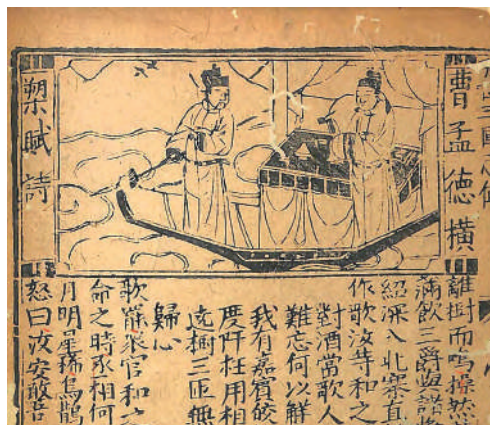 曹孟德橫
槊賦詩
離樹而鳴操
滿飲三爵與諸將
紹深入北塞直
作歌汝等和之
對酒當歌人
難忘何以觧
我有嘉賔皎
度阡枉用相
遶樹三匝無
歸心
歌罷衆官和
命之時丞相何
月明星稀烏鵲
怒曰汝安敢吾